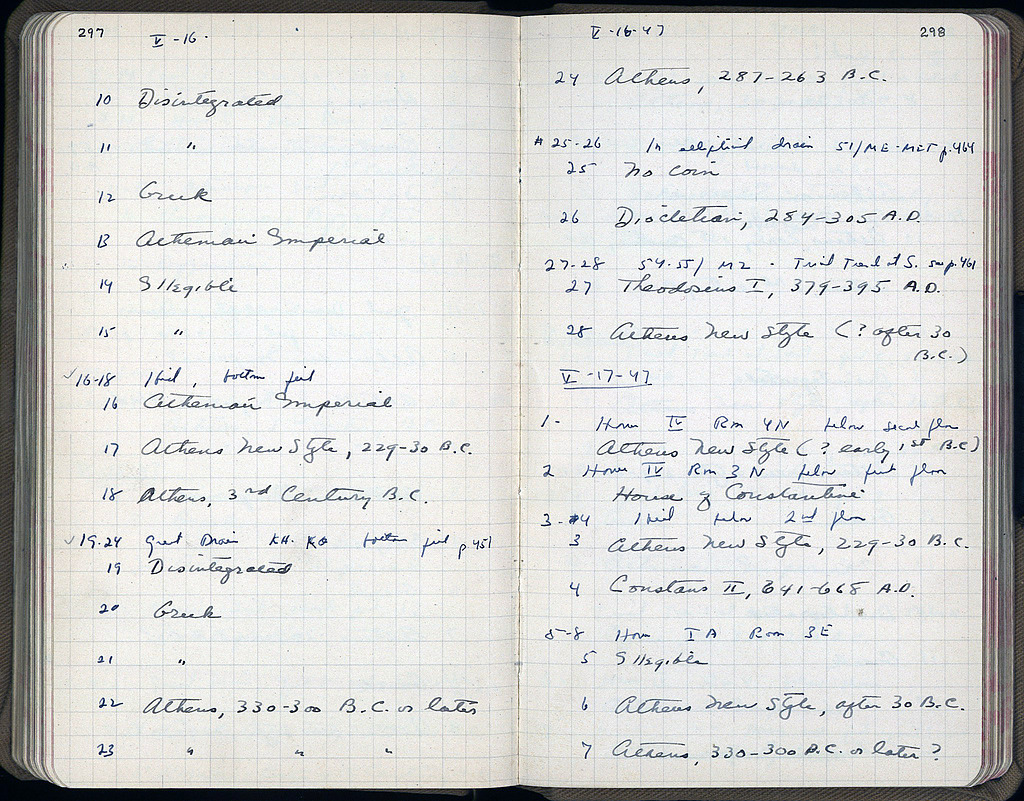 297
V-16-
10 Disintegrated
11 "
12 Greek
13 Athenian Imperial
14 Illegible
15 "
✓16-18 Ibid, bottom first
16 Athenian Imperial
17 Athens New Style, 229-30 B.C.
18 Athens, 3rd Century B.C.
✓19-24 Great Drain bottom p 451
19 Disintegrated
20 Greek
21 "
22 Athens, 330-300 B.C. or later
23 " " "
V-16-47
298
24 Athens, 287-263 B.C.
#25-26 In elliptical drain 51/ME-MET p.464
25 No coin
26 Diocletian, 284-305 A.D.
27-28 54-55/MZ - Trial Trench at S. see p.461
27 Theodosius I, 379-395 A.D.
28 Athens New Style (? after 30
B.C.)
V-17-47
1- House IV Rm 4N below second floor
Athens New Style (? early 1st B.C.)
2 House IV Rm 3 N below first floor
House of Constantine
3-#4 Ibid below 2nd floor
3 Athens New Style, 229-30 B.C.
4 Constans II, 641-668 A.D.
5-8 House I A Room 3E
5 Illegible
6 Athens New Style, after 30 B.C.
7 Athens, 330-300 B.C. or later?